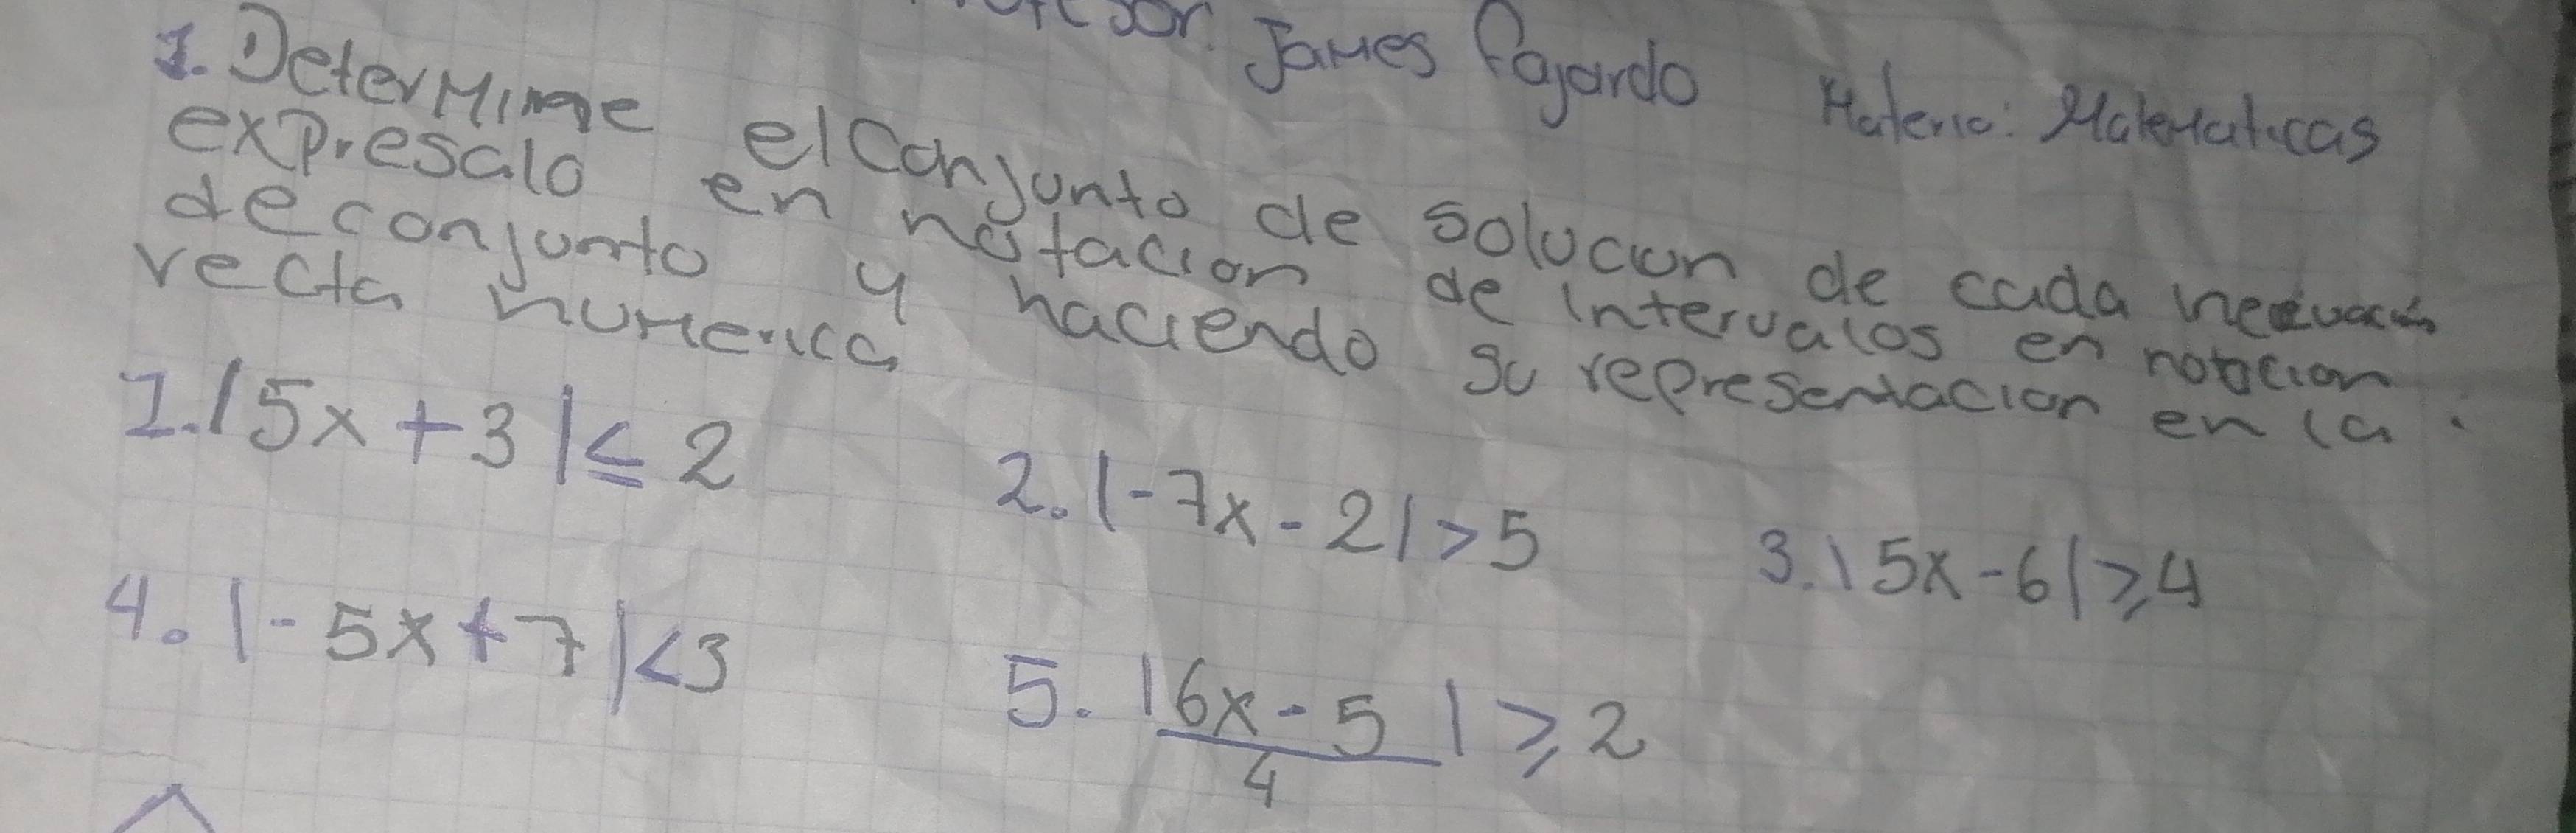 James Fajardo Materia: Matematicas
1. Determine el Conjunto de Solucion de cada inecuacion
expresalo en notacion de intervalos en notacion
de conjunto y haciendo su representacion en la
recta numerica
1. |5x + 3| ≤ 2
2. |-7x - 2| > 5
3. |5x - 6| ≥ 4
4. |-5x + 7| < 3
5. |6x - 5| ≥ 2
4